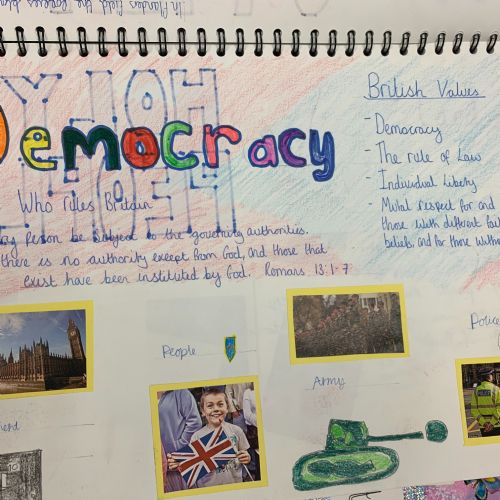 In Flanders field the poppies blow
Democracy
Who rules Britain
ry Person be Subject to the governing authorities.
there is no authority except from God, and those that
exist have been instituted by God. Romans 13:1-7
British Values
- Democracy
- The rule of Law
- Individual liberty
- Mutal respect for and
those with different fai
beliefs, and for those witho
People
Army
Police
10